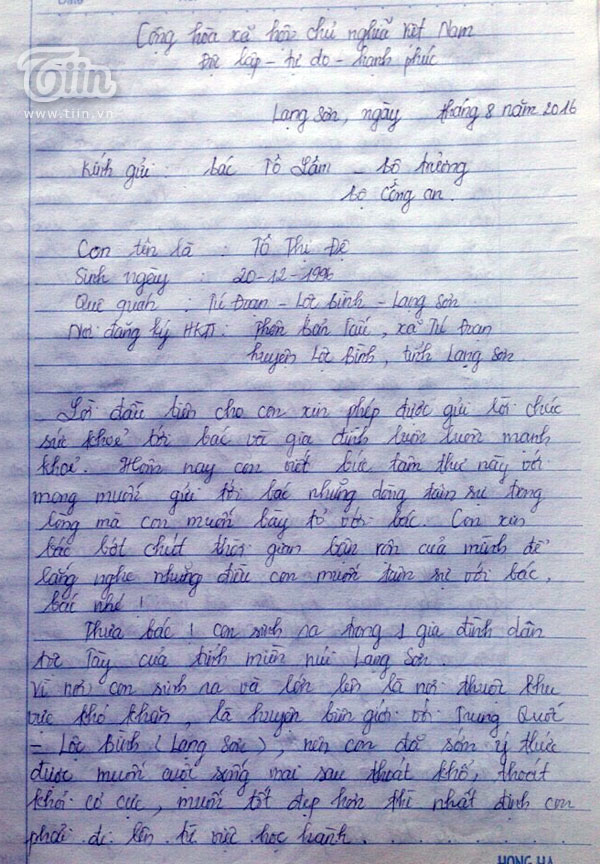 Cộng hòa xã hội chủ nghĩa Việt Nam
Độc lập - tự do - hạnh phúc
Tiin
www.tiin.vn
Lạng Sơn, ngày tháng 8 năm 2016
Kính gửi : bác Tô Lâm - bộ trưởng
bộ Công an.
Con tên là : Tô Thị Đệ
Sinh ngày : 20-12-1996
Quê quán : Tú Đoạn - Lộc Bình - Lạng Sơn
Nơi đăng ký HKTT: Thôn bản Tẩu, xã Tú Đoạn
huyện Lộc Bình, tỉnh Lạng Sơn.
Lời đầu tiên cho con xin phép được gửi lời chúc
sức khoẻ tới bác và gia đình luôn luôn mạnh
khoẻ. Hôm nay con viết bức tâm thư này với
mong muốn gửi tới bác những dòng tâm sự trong
lòng mà con muốn bày tỏ với bác. Con xin
bác bớt chút thời gian bận rộn của mình để
lắng nghe những điều con muốn tâm sự với bác,
bác nhé !
Thưa bác ! con sinh ra trong 1 gia đình dân
tộc Tày của tỉnh miền núi Lạng Sơn.
Vì nơi con sinh ra và lớn lên là nơi thuộc khu
vực khó khăn, là huyện biên giới với Trung Quốc
- Lộc Bình (Lạng Sơn), nên con đã sớm ý thức
được muốn cuộc sống mai sau thoát khổ, thoát
khỏi cơ cực, muốn tốt đẹp hơn thì nhất định con
phải đi lên từ việc học hành.
HONG HA